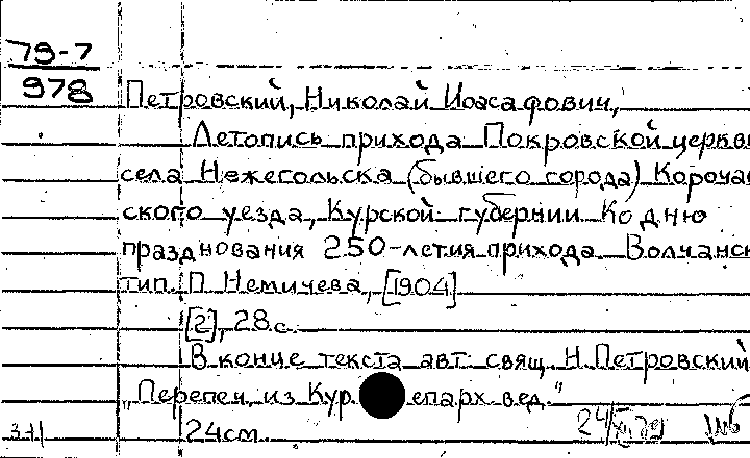 79-7
978
Петровский, Николай Иоасафович,
Летопись прихода Покровской церкв
села Нежегольска (бывшего города) Корочан
ского уезда, Курской губернии Ко дню
празднования 250-летия прихода Волчанск
тип. П Немичева, [1904]
[2], 28 с.
В конце текста авт свящ. Н. Петровский
„Перепеч. из Кур. епарх вед."
24 см.